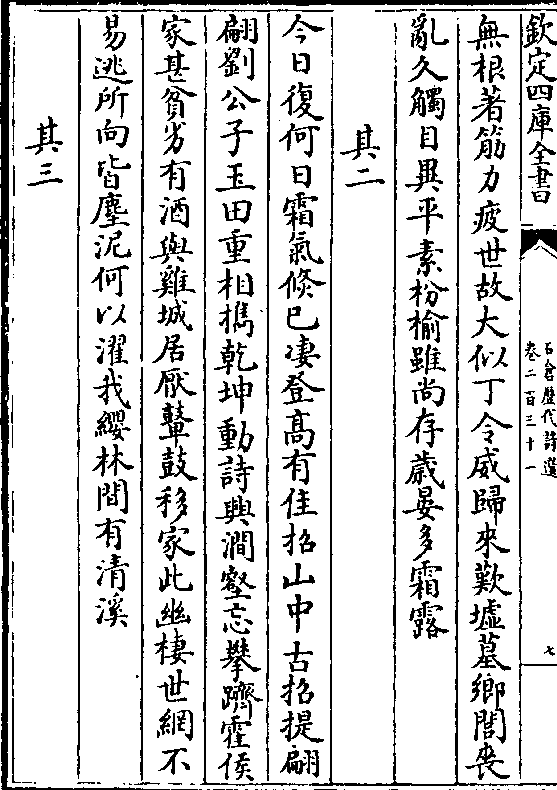 欽定四庫全書
石倉歷代詩選
卷二百三十一
七
無根著筋力疲世故大似丁令威歸來歎墟墓鄉閭喪
亂久觸目異平素枌榆雖尚存歲晏多霜露
其二
今日復何日霜氣倐已凄登髙有佳招山中古招提翩
翩劉公子玉田重相擕乾坤動詩興澗壑忘攀躋霍侯
家甚貧労有酒與雞城居厭鼙鼓移家此幽棲世網不
易逃所向皆塵泥何以濯我纓林間有清溪
其三